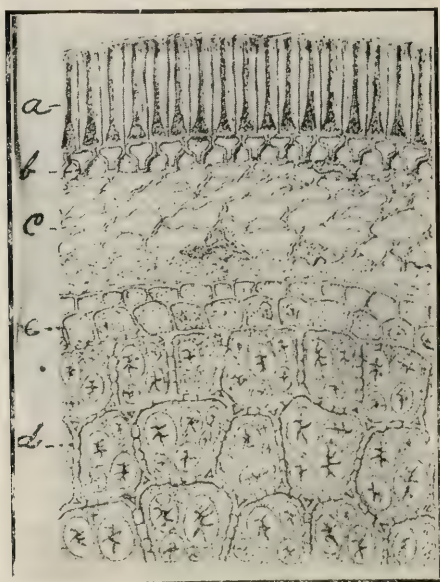 a-
b-
c-
c--
d--